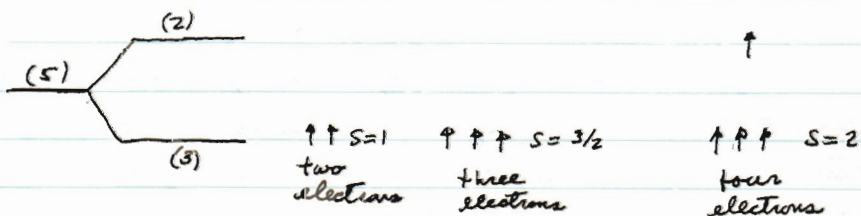 (2)
(5)
(3)
↑ ↑ S=1
two
electrons
↑ ↑ ↑ S = 3/2
three
electrons
↑
↑ ↑ ↑ S = 2
four
electrons